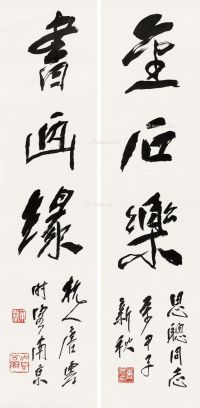 金石樂
思聰同志
甲子
新秋
書画緣
杭人唐雲
时客南京